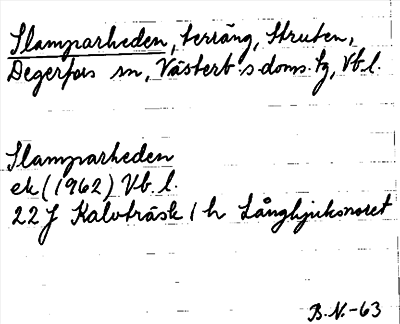 Slamparheden, terräng, Struten,
Degerfors sn, Västerb. s. doms. tg, Vb. l.
Slamparheden
ek (1962) Vb. l.
22 J Kalvträsk 1 h
B.N.-63